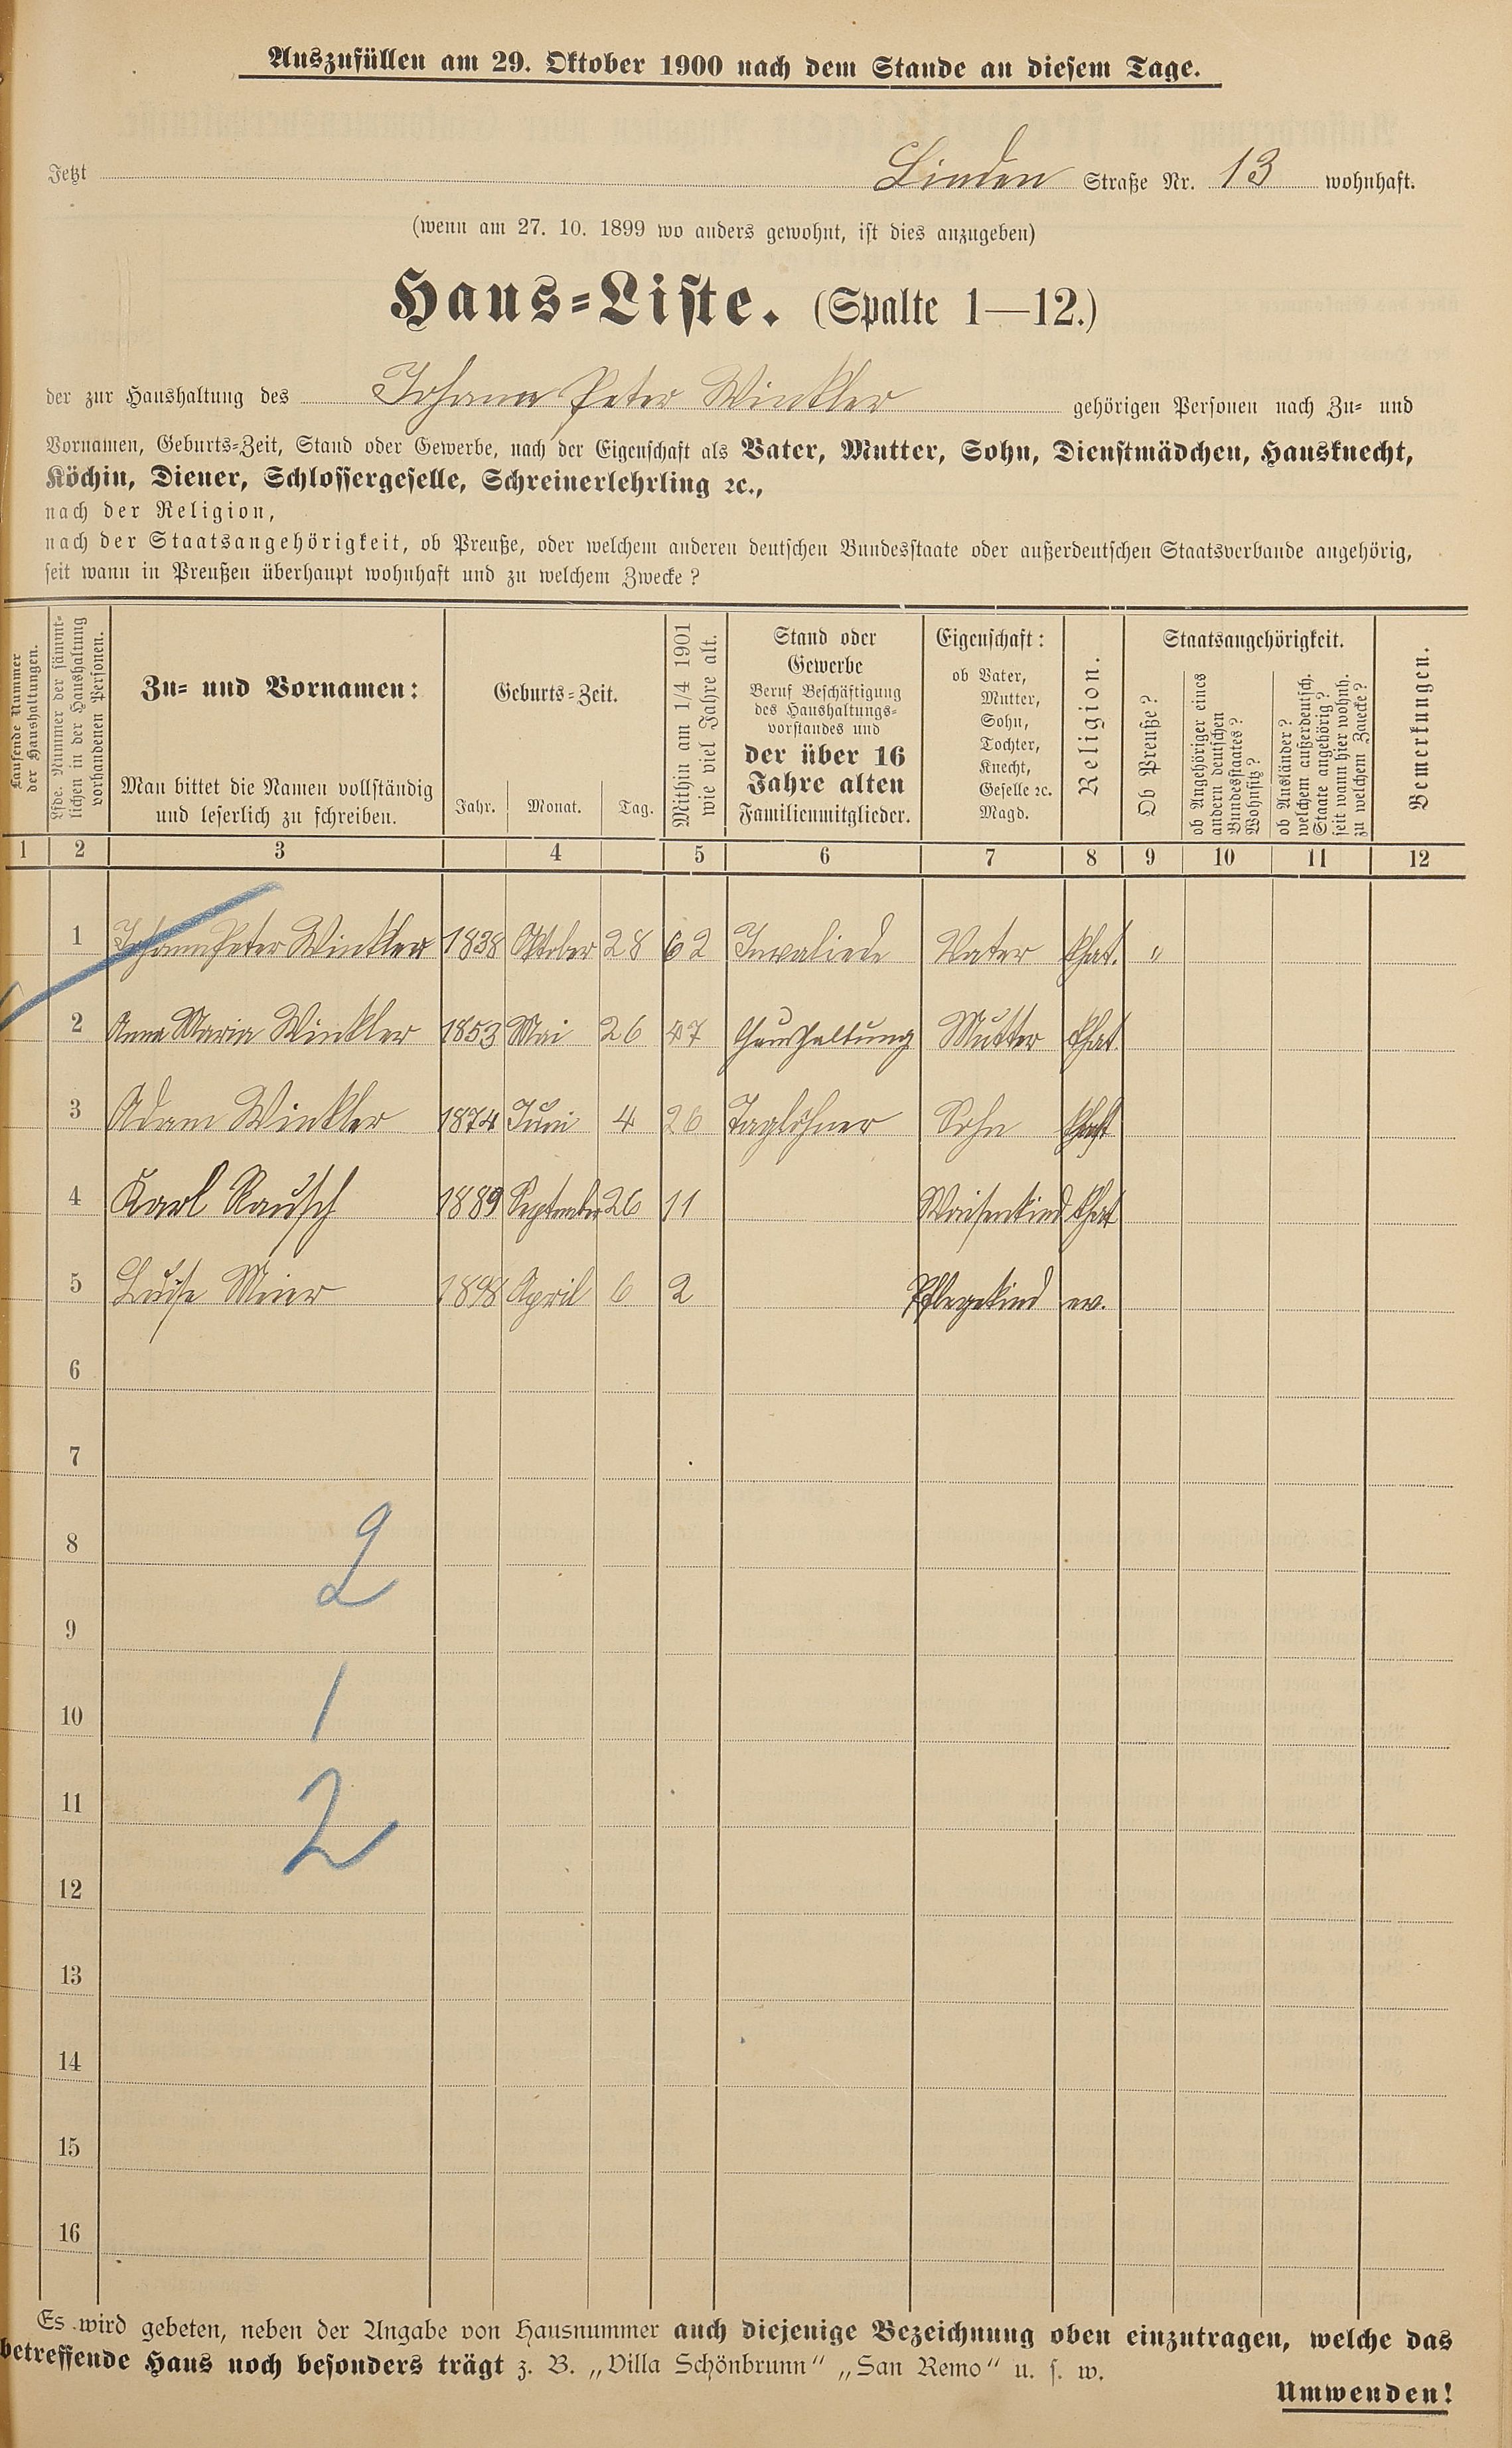 Auszufüllen am 29. Oktober 1900 nach dem Stande an diesem Tage.
Jetzt Linden Straße Nr. 13 wohnhaft.
(wenn am 27. 10. 1899 wo anders gewohnt, ist dies anzugeben)
Haus-Liste. (Spalte 1—12.)
der zur Haushaltung des Johann Peter Winkler gehörigen Personen nach Zu- und
Vornamen, Geburts-Zeit, Stand oder Gewerbe, nach der Eigenschaft als Vater, Mutter, Sohn, Dienstmädchen, Hausknecht,
Köchin, Diener, Schlossergeselle, Schreinerlehrling ꝛc.,
nach der Religion,
nach der Staatsangehörigkeit, ob Preuße, oder welchem anderen deutschen Bundesstaate oder außerdeutschen Staatsverbande angehörig,
seit wann in Preußen überhaupt wohnhaft und zu welchem Zwecke?
Laufende Nummer
der Haushaltungen.
Lfde. Nummer der sämmt-
lichen in der Haushaltung
vorhandenen Personen.
Zu- und Vornamen:
Man bittet die Namen vollständig
und leserlich zu schreiben.
Geburts-Zeit.
Jahr. Monat. Tag.
Mithin am 1/4 1901
wie viel Jahre alt.
Stand oder
Gewerbe
Beruf Beschäftigung
des Haushaltungs-
vorstandes und
der über 16
Jahre alten
Familienmitglieder.
Eigenschaft:
ob Vater,
Mutter,
Sohn,
Tochter,
Knecht,
Geselle ꝛc.
Magd.
Religion.
Staatsangehörigkeit.
Ob Preuße?
ob Angehöriger eines
andern deutschen
Bundesstaates?
Wohnsitz?
ob Ausländer?
welchem außerdeutsch.
Staate angehörig?
seit wann hier wohnh.
zu welchem Zwecke?
Bemerkungen.
1 2 3 4 5 6 7 8 9 10 11 12
1 Johann Peter Winkler 1838 Oktober 28 62 Invaliede Vater khat. "
2 Anna Maria Winkler 1853 Mai 26 47 Haushaltung Mutter khat.
3 Adam Winkler 1874 Juni 4 26 Taglöhner Sohn khat
4 Karl Rausch 1889 September 26 11 Waisenkind khat
5 Luise Meier 1898 April 6 2 Pflegekind ev.
6
7
8
2
9
10
1
11
2
12
13
14
15
16
Es wird gebeten, neben der Angabe von Hausnummer auch diejenige Bezeichnung oben einzutragen, welche das
betreffende Haus noch besonders trägt z. B. „Villa Schönbrunn“ „San Remo“ u. s. w.
Umwenden!